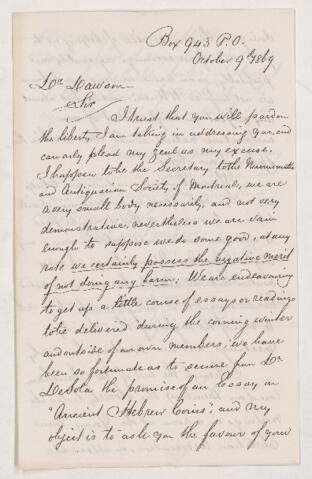 Box 943 P.O.
October 9th 1869
Dr. Dawson
Sir
I trust that you will pardon
the liberty I am taking in addressing you, and
can only plead my zeal as my excuse.
I happen to be the Secretary to the Numismatic
and Antiquarian Society of Montreal, we are
a very small body necessarily, and not very
demonstrative, nevertheless we are vain
enough to suppose we do some good, at any
rate we certainly possess the negative merit
of not doing any harm; We are endeavouring
to get up a little course of essays or readings
to be delivered during the coming winter
and outside of our own members, we have
been so fortunate as to secure from Dr.
DeSola the promise of an Essay on
"Ancient Hebrew Coins", and my
object is to ask you the favour of your